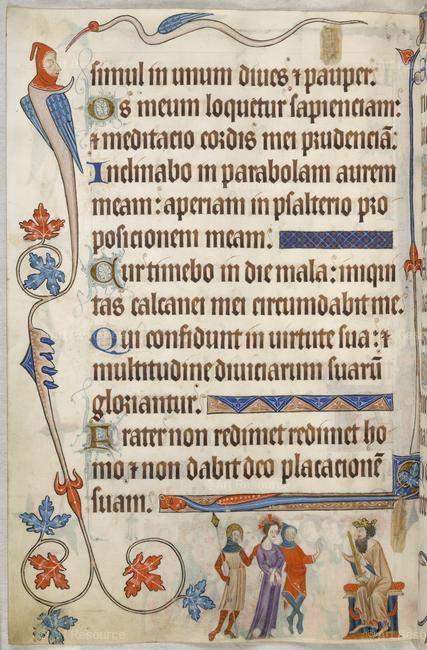 simul in unum diues ⁊ pauper.
Os meum loquetur sapienciam:
⁊ meditacio cordis mei prudenciā.
Inclinabo in parabolam aurem
meam: aperiam in psalterio pro
posicionem meam:
Cur timebo in die mala: iniqui
tas calcanei mei circumdabit me.
Qui confidunt in uirtute sua: ⁊
multitudine diuiciarum suarū
gloriantur.
Frater non redimet redimet ho
mo ⁊ non dabit deo placacionē
suam.